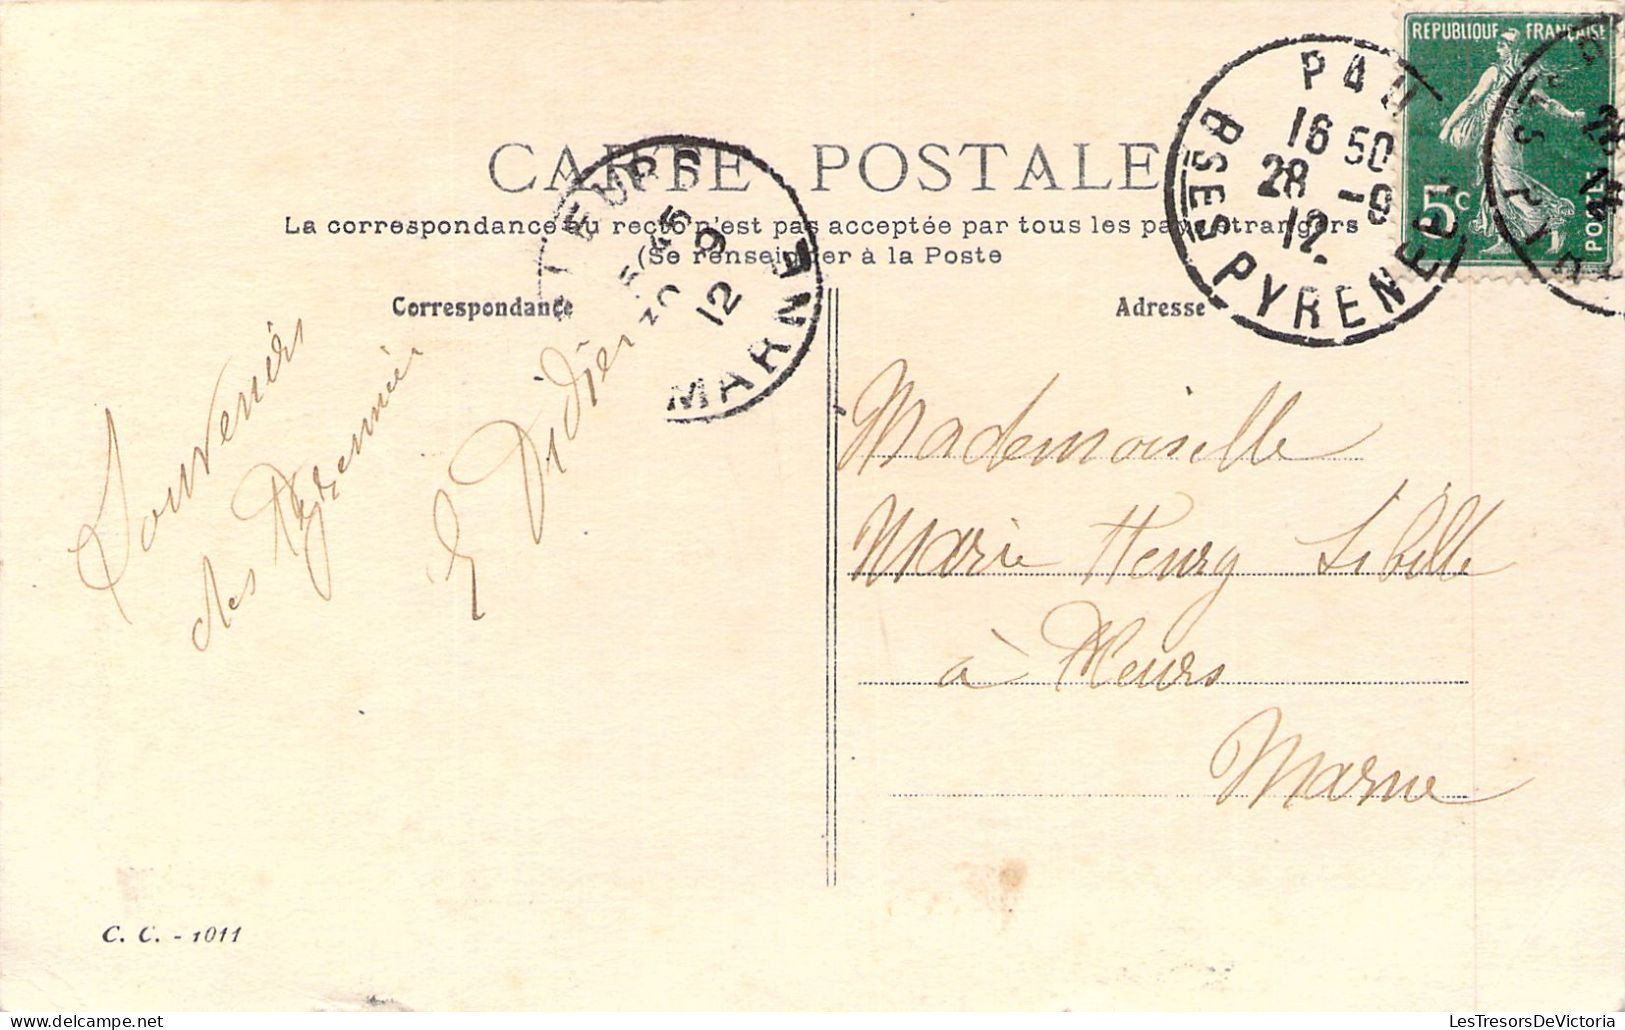 CARTE POSTALE
La correspondance au recto n'est pas acceptée par tous les pays étrangers
(Se renseigner à la Poste
Correspondance
Adresse
REPUBLIQUE FRANÇAISE
5c
POSTES
PAU
16 50
28 -9
12.
BSES PYRENEES
FLEURS
5 45
30 9
12
MARNE
Souvenirs
des
E Didier
Mademoiselle
Marie Henry Sibille
à Fleurs
Marne
C. C. - 1011
www.LesTresorsDeVictoria.com